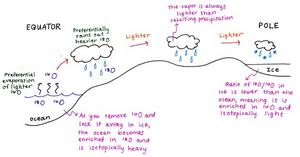 EQUATOR
Preferentially
rains out
heavier 18O
Lighter
The vapor is always
lighter than
resulting precipitation
Lighter
POLE
Preferential
evaporation
of lighter
16O
16O
16O
18O
18O
ocean
As you remove 16O and
lock it away in ice,
the ocean becomes
enriched in 18O and
is isotopically heavy
Ice
Ratio of 18O/16O in
ice is lower than the
ocean, meaning it is
enriched in 16O and
isotopically light